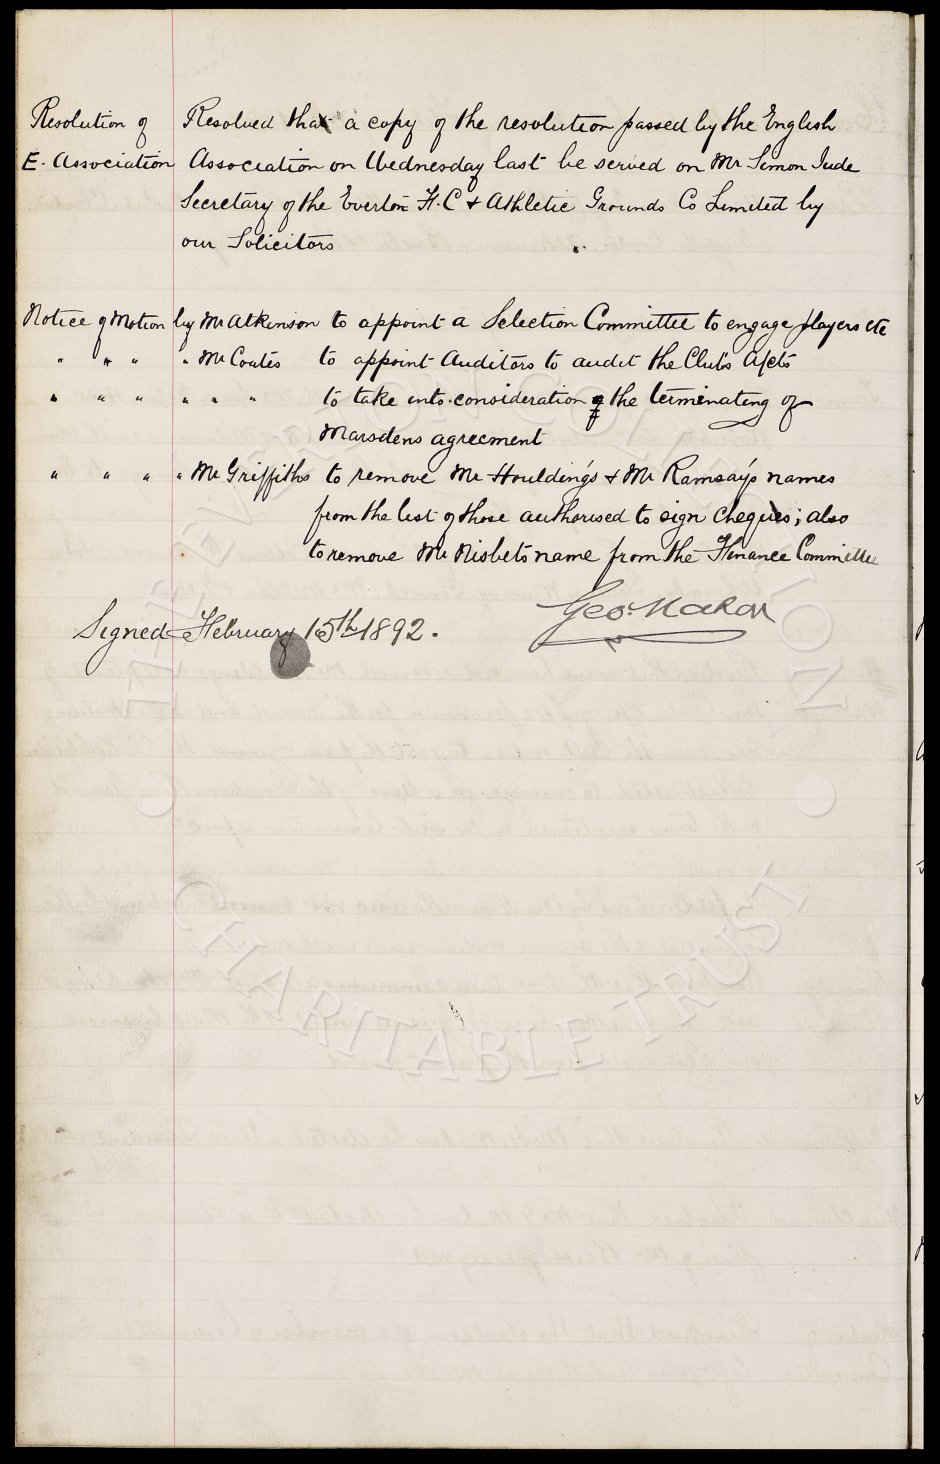 Resolution of Resolved that a copy of the resolution passed by the English
E. Association Association on Wednesday last be served on Mr Simon Jude
Secretary of the Everton F.C & Athletic Grounds Co Limited by
our Solicitors
Notice of Motion by Mr Atkinson to appoint a Selection Committee to engage players etc
" " " " Mr Coates to appoint Auditors to audit the Club's A/cts
" " " " " " to take into consideration of the terminating of
Marsdens agreement
" " " " Mr Griffiths to remove Mr Houlding's & Mr Ramsay's names
from the list of those authorised to sign cheques; also
to remove Mr Nisbets name from the Finance Committee
Geo Mahon
Signed February 15th 1892.
THE EVERTON COLLECTION
CHARITABLE TRUST